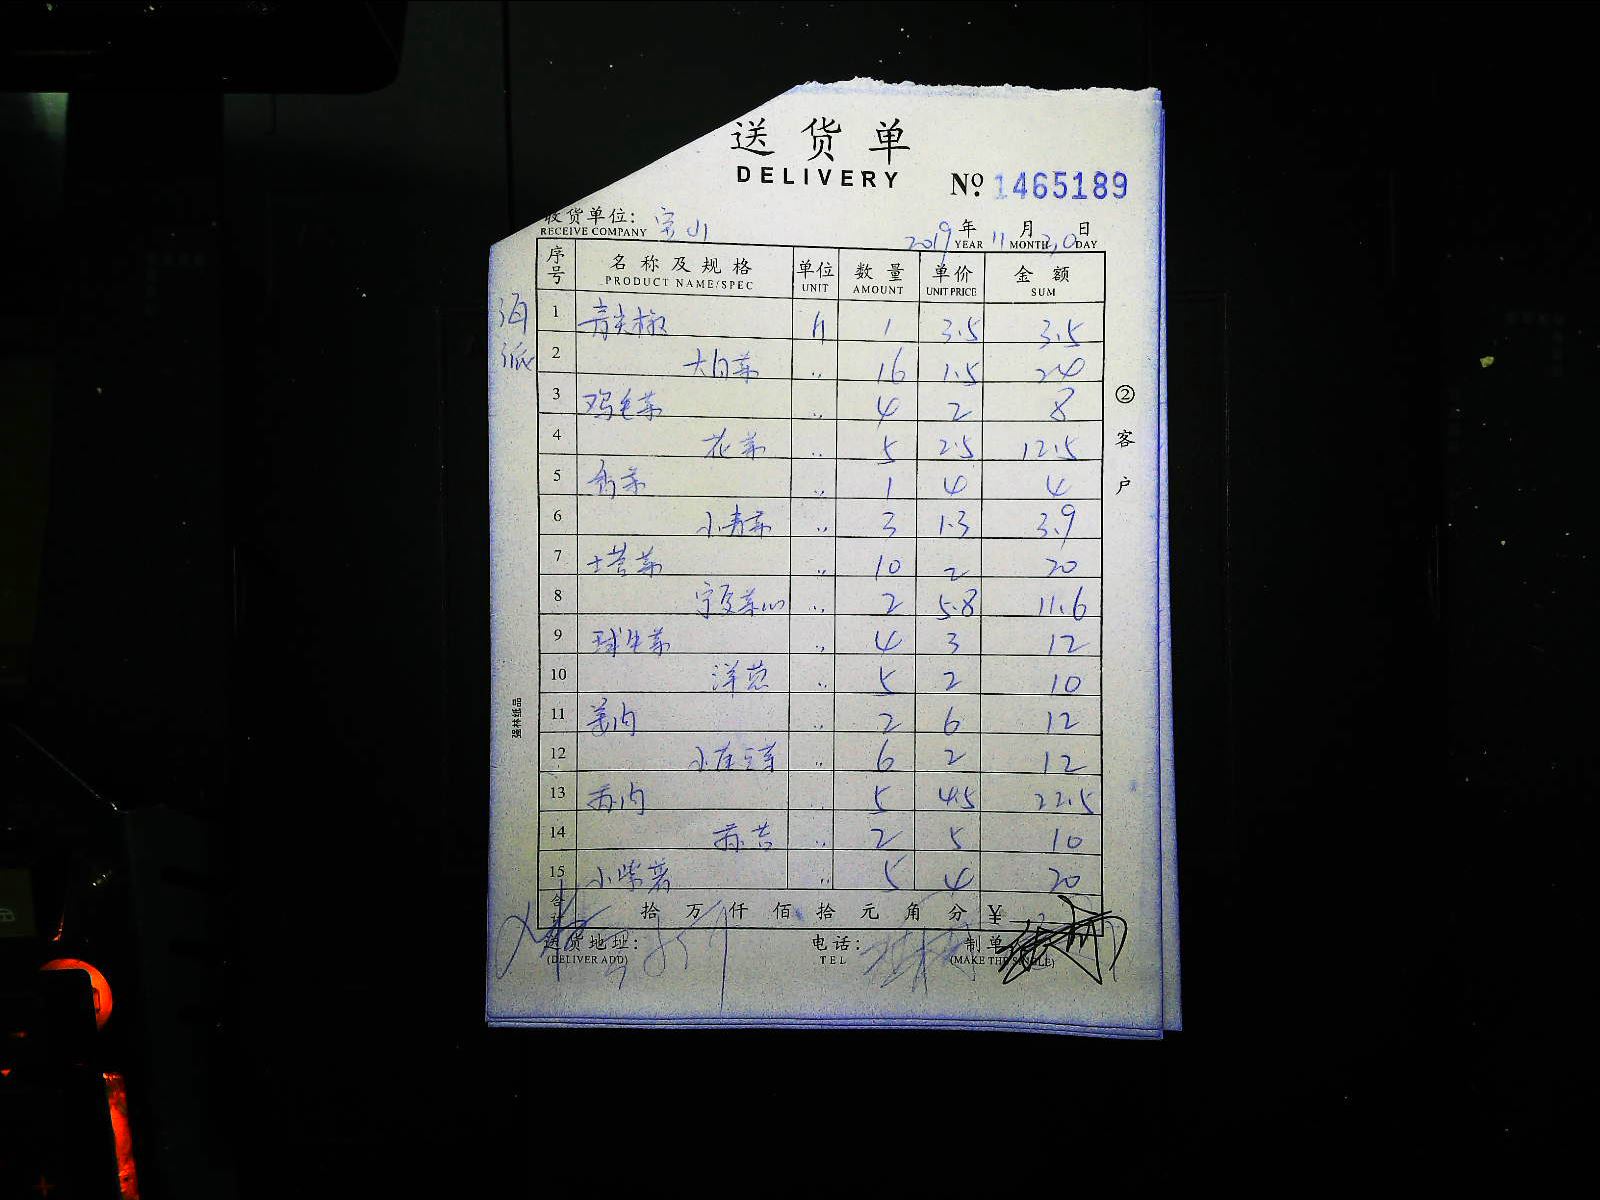 送货单
DELIVERY
№ 1465189
收货单位: 宝山
RECEIVE COMPANY
2019 年 YEAR 11 月 MONTH 20 日 DAY
序号 名称及规格 单位 数量 单价 金额
PRODUCT NAME/SPEC UNIT AMOUNT UNIT PRICE SUM
海派
1 青尖椒 斤 1 3.5 3.5
2 大白菜 〃 16 1.5 24
3 鸡毛菜 〃 4 2 8
4 花菜 〃 5 2.5 12.5
5 香菜 〃 1 4 4
6 小青菜 〃 3 1.3 3.9
7 塔菜 〃 10 2 20
8 宁夏菜心 〃 2 5.8 11.6
9 球生菜 〃 4 3 12
10 洋葱 〃 5 2 10
11 姜肉 〃 2 6 12
12 6 2 12
13 5 4.5 22.5
14 〃 2 5 10
15 小紫薯 〃 5 4 20
合 拾 万 仟 佰 拾 元 角 分 ¥
送货地址:
(DELIVER ADD)
电话:
TEL
制单
(MAKE THE SINGLE)
②客户
强林纸品